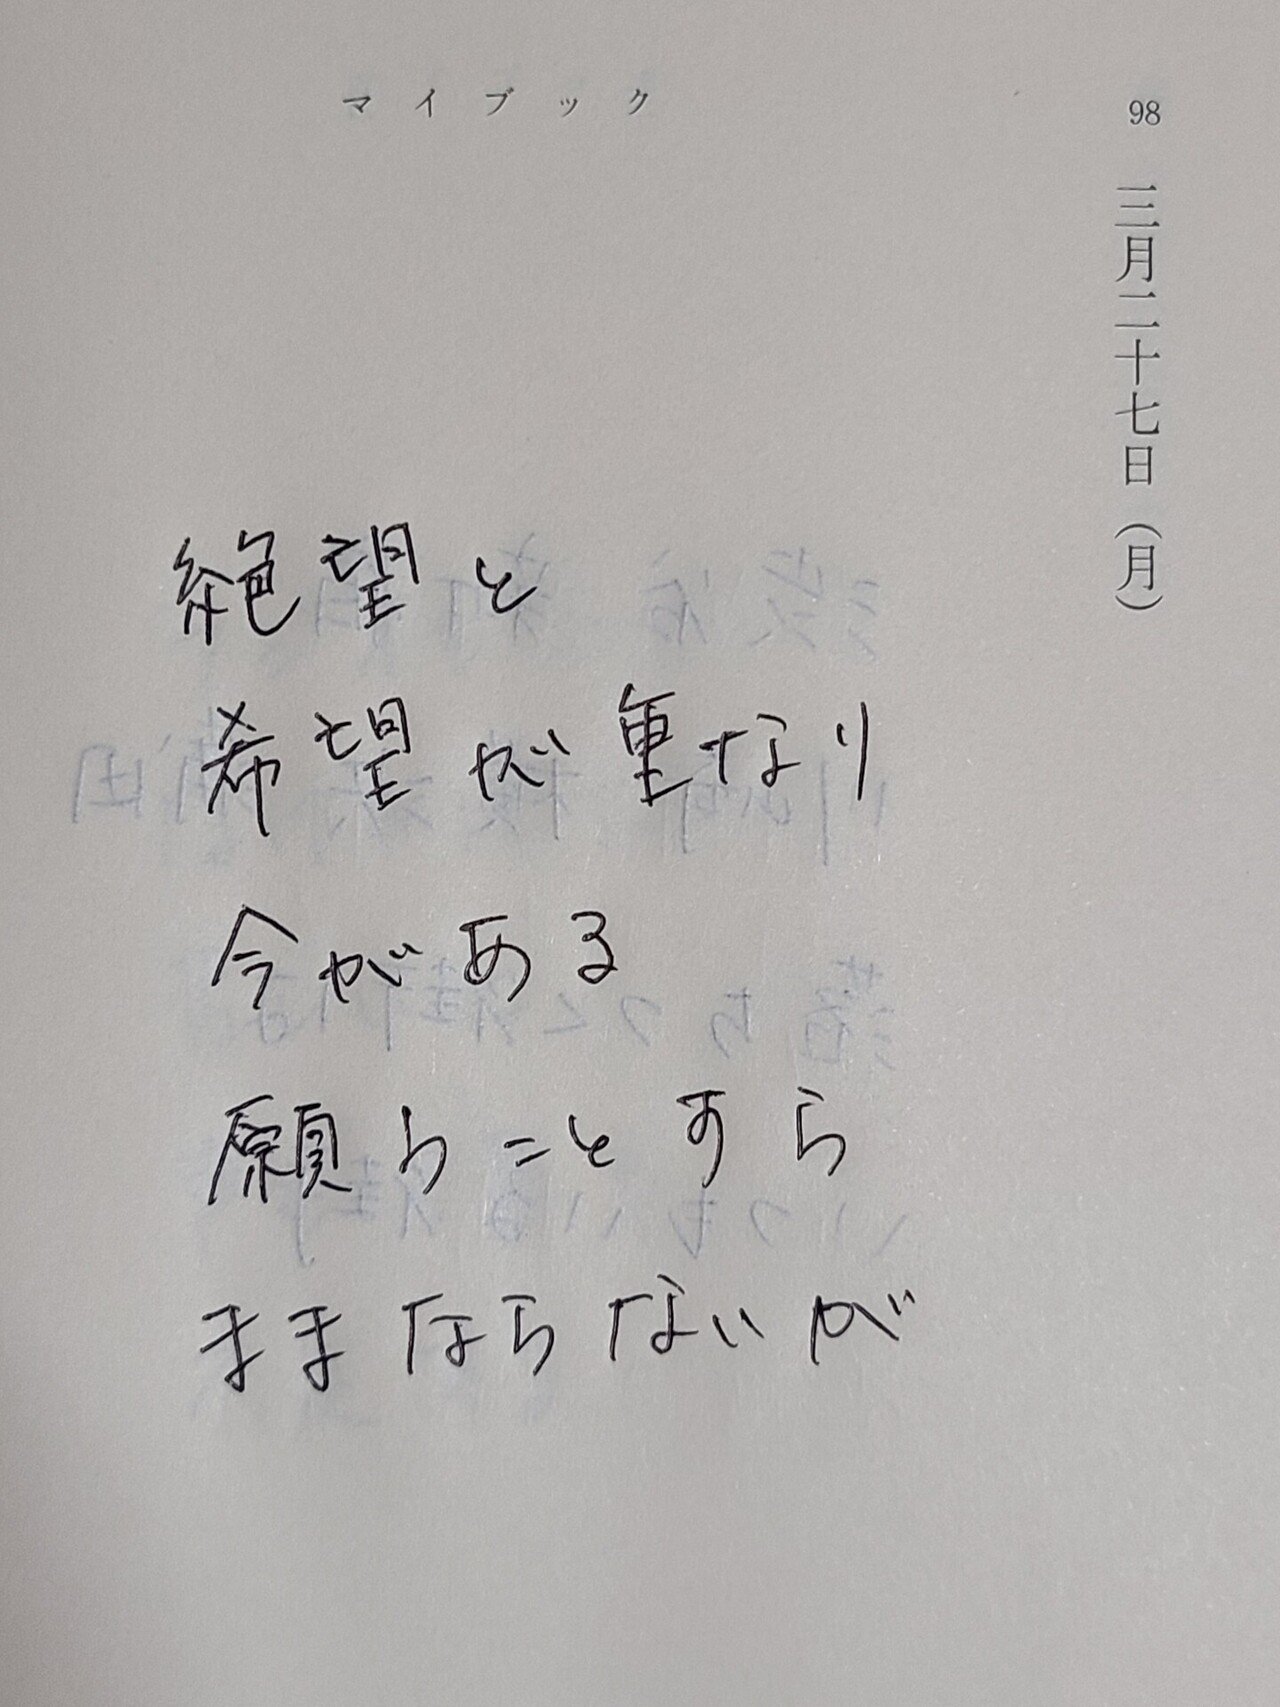 マイブック
98
三月二十七日(月)
絶望と
希望が重なり
今がある
願うことすら
ままならないが